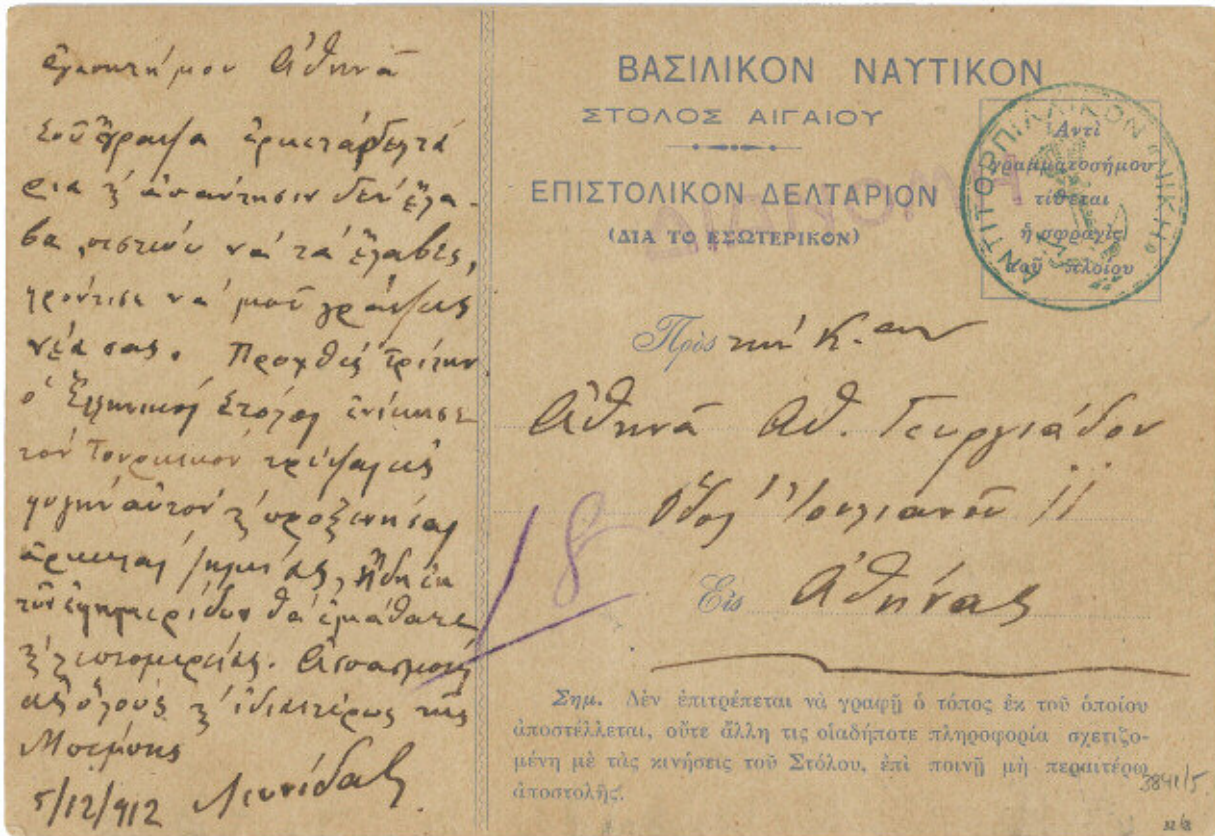 ἀγαπητή μου Ἀθηνᾶ
Σοῦ ἔγραψα ἀρκετὰ δελτά
ρια κ' ἀπάντησιν δὲν ἔλα-
βα, πιστεύω νὰ τὰ ἔλαβες,
φρόντισε νὰ μοῦ γράψῃς
νέα σας. Προχθὲς Τρίτην
ὁ Ἑλληνικὸς Στόλος ἐνίκησε
τὸν Τουρκικὸν τρέψας εἰς
φυγὴν αὐτὸν κ' προξενήσας
ἀρκετὰς ζημίας, ἤδη ἐκ
τῶν ἐφημερίδων θὰ ἐμάθατε
κ' λεπτομερείας. Ἀσπασμοὺς
εἰς ὅλους κ' ἰδιαιτέρως τῆς
5/12/912 Λεωνίδας
ΒΑΣΙΛΙΚΟΝ ΝΑΥΤΙΚΟΝ
ΣΤΟΛΟΣ ΑΙΓΑΙΟΥ
ΕΠΙΣΤΟΛΙΚΟΝ ΔΕΛΤΑΡΙΟΝ
(ΔΙΑ ΤΟ ΕΣΩΤΕΡΙΚΟΝ)
Ἀντὶ
γραμματοσήμου
τίθεται
ἡ σφραγὶς
τοῦ πλοίου
ΑΝΤΙΤΟΡΠΙΛΛΙΚΟΝ «ΝΙΚΗ»
Πρὸς τὴν Κ.αν
Ἀθηνᾶ Ἀθ. Γεωργιάδου
ὁδὸς Ἰουλιανοῦ 11
Εἰς Ἀθήνας
18
Σημ. Δὲν ἐπιτρέπεται νὰ γραφῇ ὁ τόπος ἐκ τοῦ ὁποίου
ἀποστέλλεται, οὔτε ἄλλη τις οἱαδήποτε πληροφορία σχετιζο-
μένη μὲ τὰς κινήσεις τοῦ Στόλου, ἐπὶ ποινῇ μὴ περαιτέρω
ἀποστολῆς.
3841/5